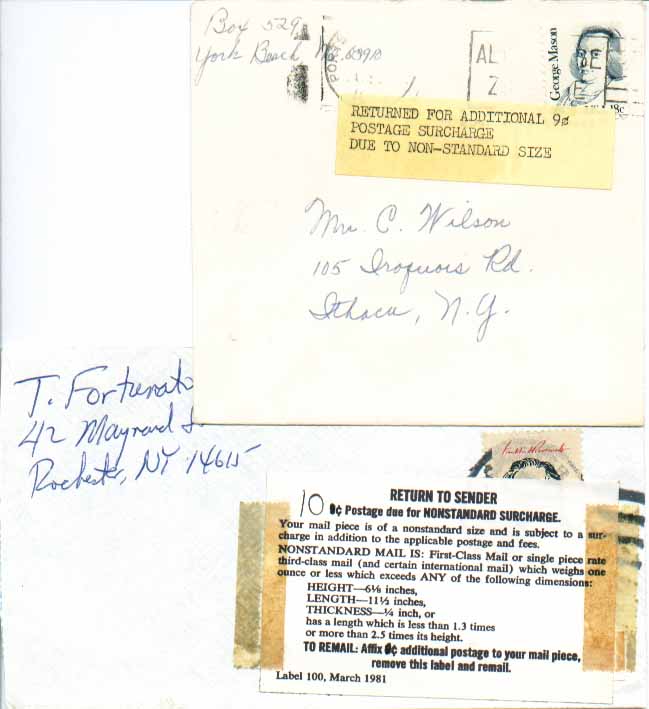 Box 529
York Beach Me. 03910
George Mason
18c
RETURNED FOR ADDITIONAL 9¢
POSTAGE SURCHARGE
DUE TO NON-STANDARD SIZE
Mr. C. Wilson
105 Iroquois Rd.
Ithaca, N.Y.
T. Fortunato
42 Maynard
Rochester, NY 14615
10
RETURN TO SENDER
9¢ Postage due for NONSTANDARD SURCHARGE.
Your mail piece is of a nonstandard size and is subject to a sur-
charge in addition to the applicable postage and fees.
NONSTANDARD MAIL IS: First-Class Mail or single piece rate
third-class mail (and certain international mail) which weighs one
ounce or less which exceeds ANY of the following dimensions:
HEIGHT—6⅛ inches,
LENGTH—11½ inches,
THICKNESS—¼ inch, or
has a length which is less than 1.3 times
or more than 2.5 times its height.
TO REMAIL: Affix 9¢ additional postage to your mail piece,
remove this label and remail.
Label 100, March 1981